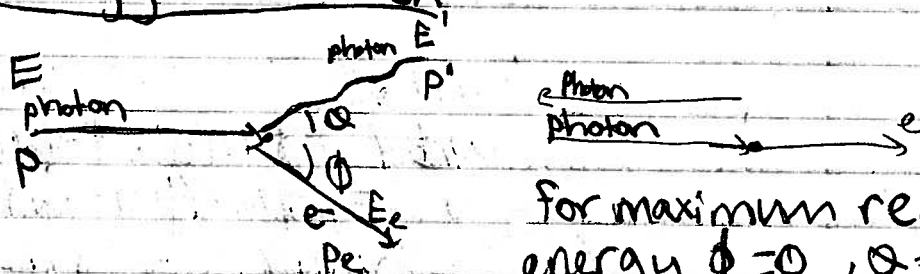 photon E'
E
photon
P'
θ
P
φ
e- Ee
Pe
Photon
photon e
for maximum re
energy φ=0, θ=